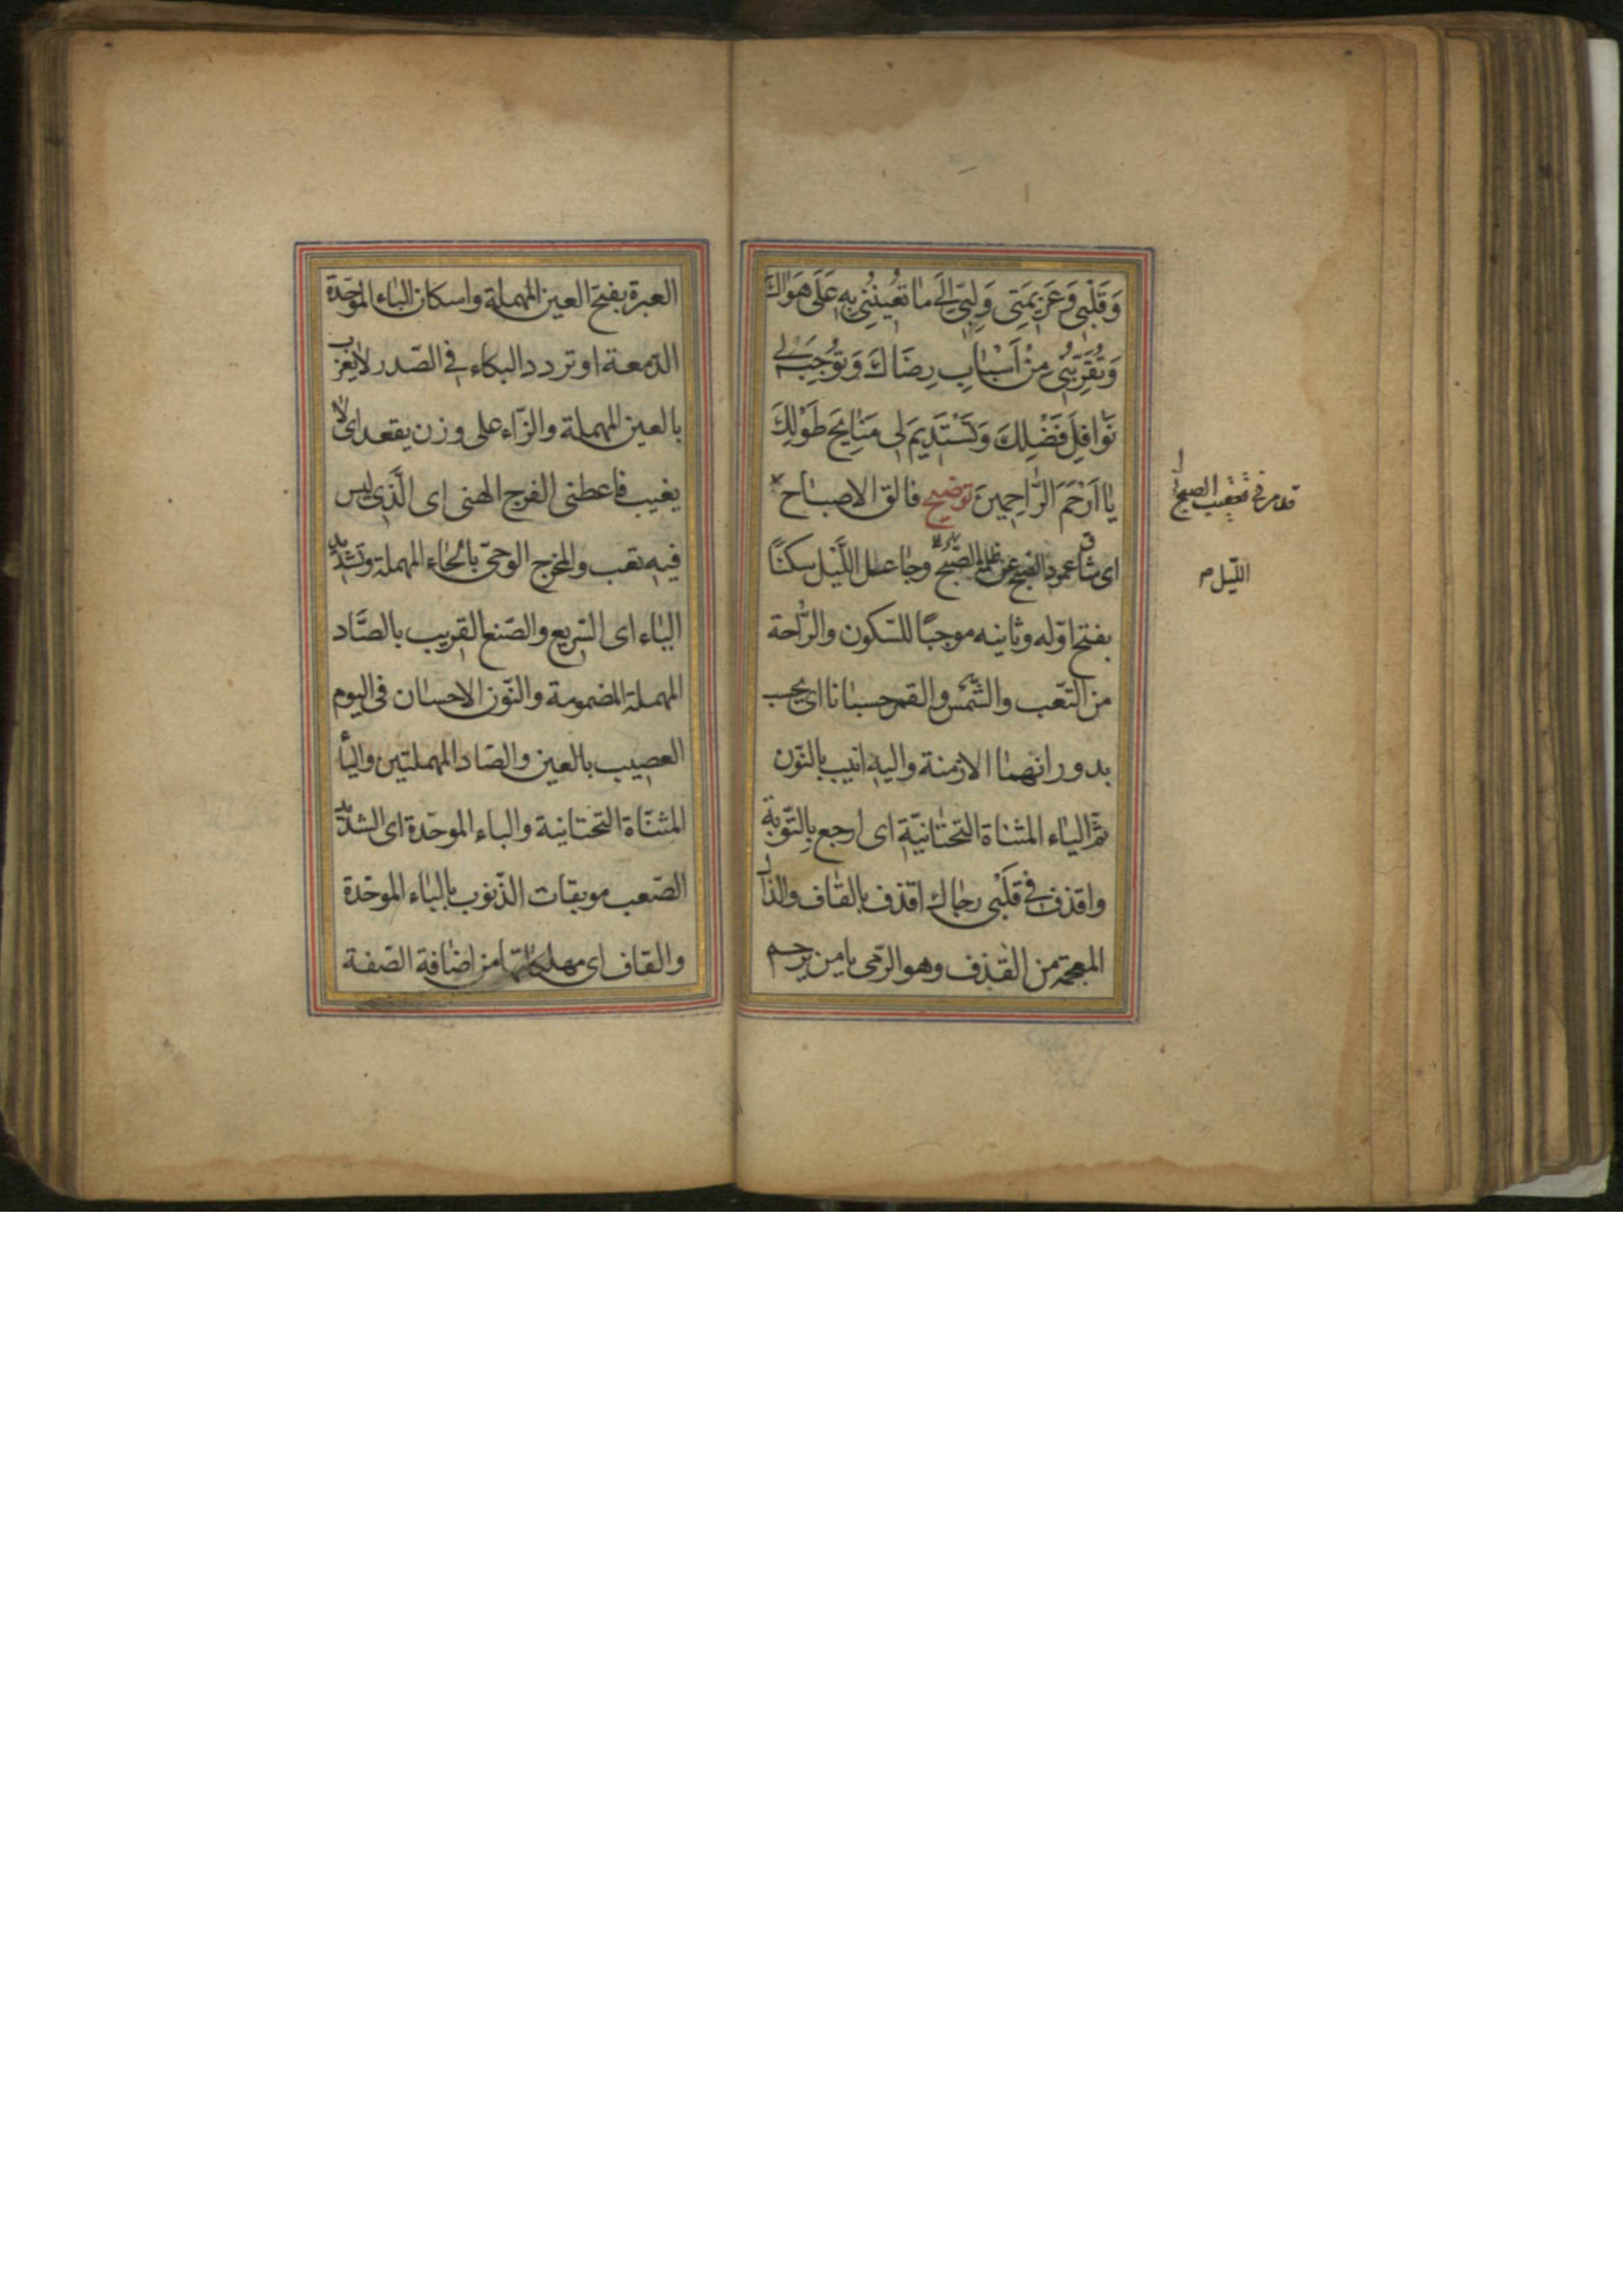 وَقَلْبِي وَعَزِيمَتِي وَلِبِّي إِلَى مَا تُعِينُنِي بِهِ عَلَى هَوَاكَ
وَتُقَرِّبُنِي مِنْ أَسْبَابِ رِضَاكَ وَتُوجِبَ لِي
نَوَافِلَ فَضْلِكَ وَتَسْتَدِيمَ لِي مَنَايِحَ طَوْلِكَ
يَا أَرْحَمَ الرَّاحِمِينَ توضيح فالق الاصباح
اى شاق عمود الصبح عن ظلمة وجاعل اللَّيْل سكنًا
بفتح اوّله وثانيه موجبًا للسّكون والرّاحة
من التّعب والشّمس والقمر حسبانا اى يحسب
بدورانهما الازمنة واليه انيب بالنّون
ثمّ الياء المثناة التّحتانيّة اى ارجع بِالتّوبة
واقذف فى قلبى رجاك اقذف بالقاف والذال
المعجمة من القذف وهو الرّمى يا من يرحم
قد مر فى تعقيب الصبح
اللّيل م
العبرة بفتح العين المهملة واسكان الباء الموحّدة
الدّمعة او تردد البكاء فى الصّدر لا يعزب
بالعين المهملة والزّاء على وزن يقعد اى لا
يغيب فاعطنى الفرج الهنى اى الّذى ليس
فيه تعب والمخرج الوحىّ بالحاء المهملة وتشديد
الياء اى السّريع والصّنع القريب بالصّاد
المهملة المضمومة والنّون الاحسان فى اليوم
العصيب بالعين والصّاد المهملتين والياء
المثنّاة التّحتانية والباء الموحّدة اى الشديد
الصّعب موبقات الذّنوب بالباء الموحّدة
والقاف اى مهلكاتها من اضافة الصّفة